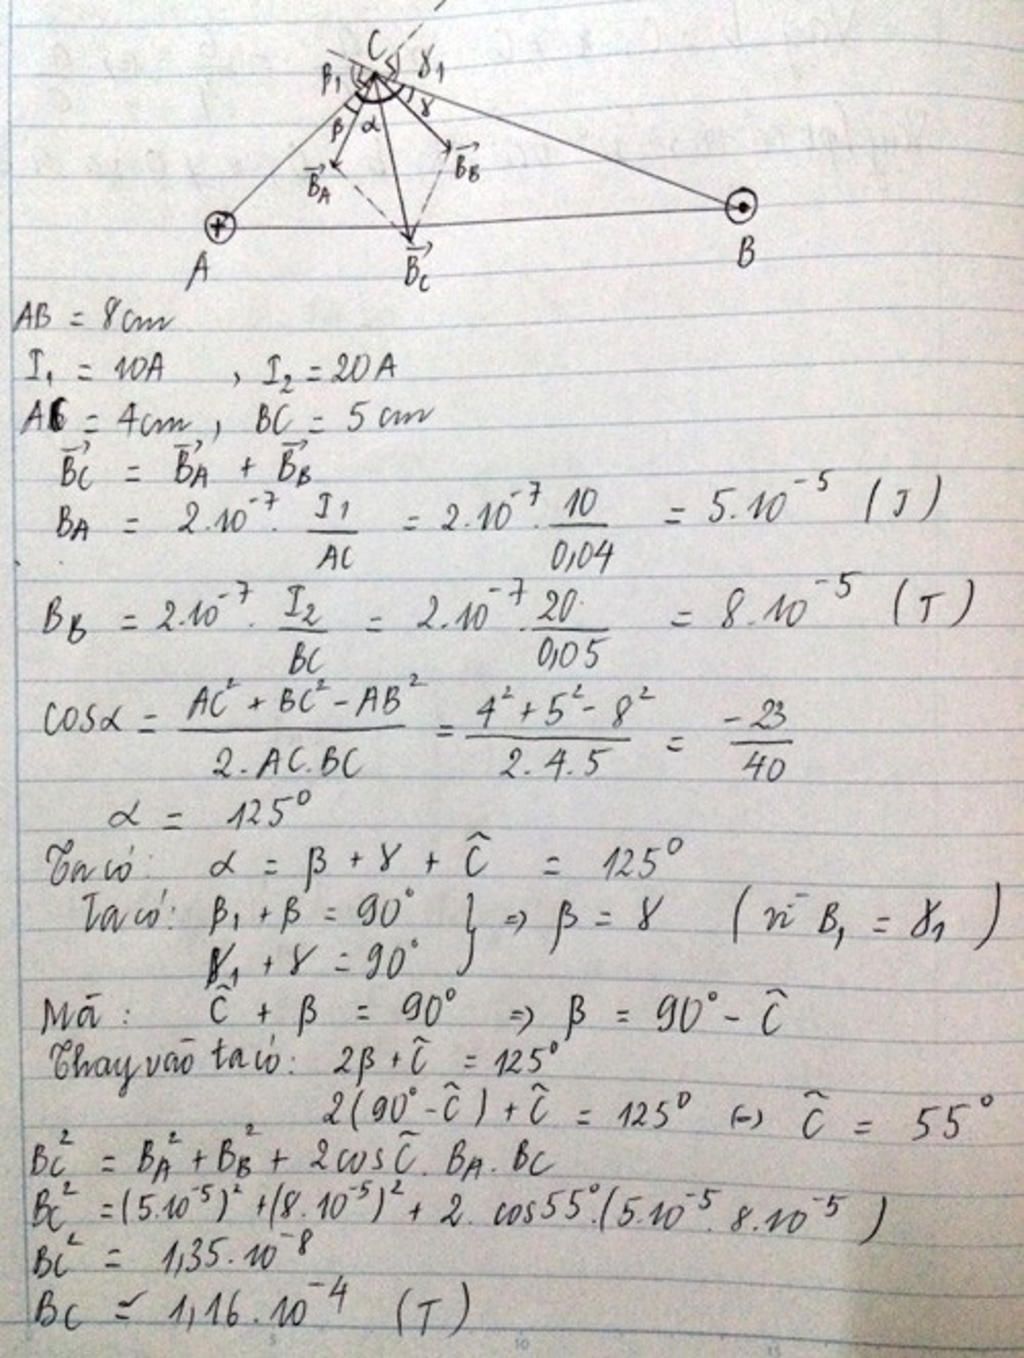 C
β₁ γ₁
β α γ
B⃗_A B⃗_B
A B⃗_C B
AB = 8cm
I₁ = 10A , I₂ = 20A
AC = 4cm, BC = 5cm
B⃗_C = B⃗_A + B⃗_B
B_A = 2.10⁻⁷. I₁/AC = 2.10⁻⁷. 10/0,04 = 5.10⁻⁵ (T)
B_B = 2.10⁻⁷. I₂/BC = 2.10⁻⁷. 20/0,05 = 8.10⁻⁵ (T)
cosα = (AC² + BC² - AB²)/(2.AC.BC) = (4² + 5² - 8²)/(2.4.5) = -23/40
α = 125°
Ta có: α = β + γ + Ĉ = 125°
Ta có: β₁ + β = 90° } => β = γ (vì B₁ = γ₁)
γ₁ + γ = 90°
Mà: Ĉ + β = 90° => β = 90° - Ĉ
Thay vào ta có: 2β + Ĉ = 125°
2(90° - Ĉ) + Ĉ = 125° (=) Ĉ = 55°
B_C² = B_A² + B_B² + 2cosĈ. B_A. B_C
B_C² = (5.10⁻⁵)² + (8.10⁻⁵)² + 2. cos55°.(5.10⁻⁵. 8.10⁻⁵)
B_C² = 1,35.10⁻⁸
B_C = 1,16.10⁻⁴ (T)